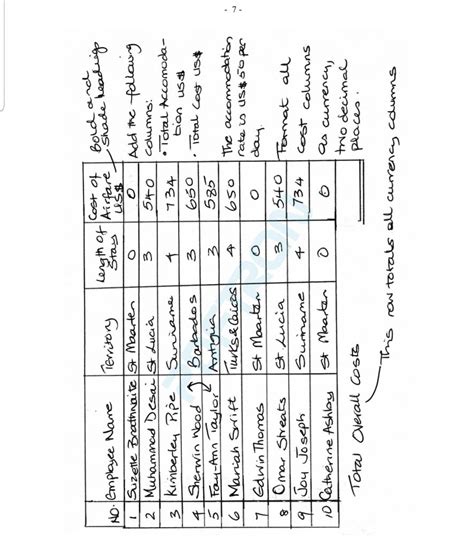 - 7 -
NO. Employee Name Territory Length of Stay Cost of Airfare US$
1 Suzette Brathwaite St Maarten 0 0
2 Muhammad Desai St Lucia 3 540
3 Kimberley Pipe Suriname 4 734
4 Sherwin Wood Barbados 3 650
5 Fay-Ann Taylor Antigua 3
6 Mariah Swift Turks & Caicos 4 650
7 Edwin Thomas St Maarten 0 0
8 Omar St Lucia 3 540
9 Joy Joseph Suriname 4 734
10 Catherine Ashby St Maarten 0 0
Total Overall Costs
This row totals all currency columns
Bold and
Shade headings
Add the following
columns:
• Total Accomoda-
tion US$
• Total Cost US$
The accommodation
rate is US$50 per
day.
Format all
cost columns
as currency,
two decimal
places.